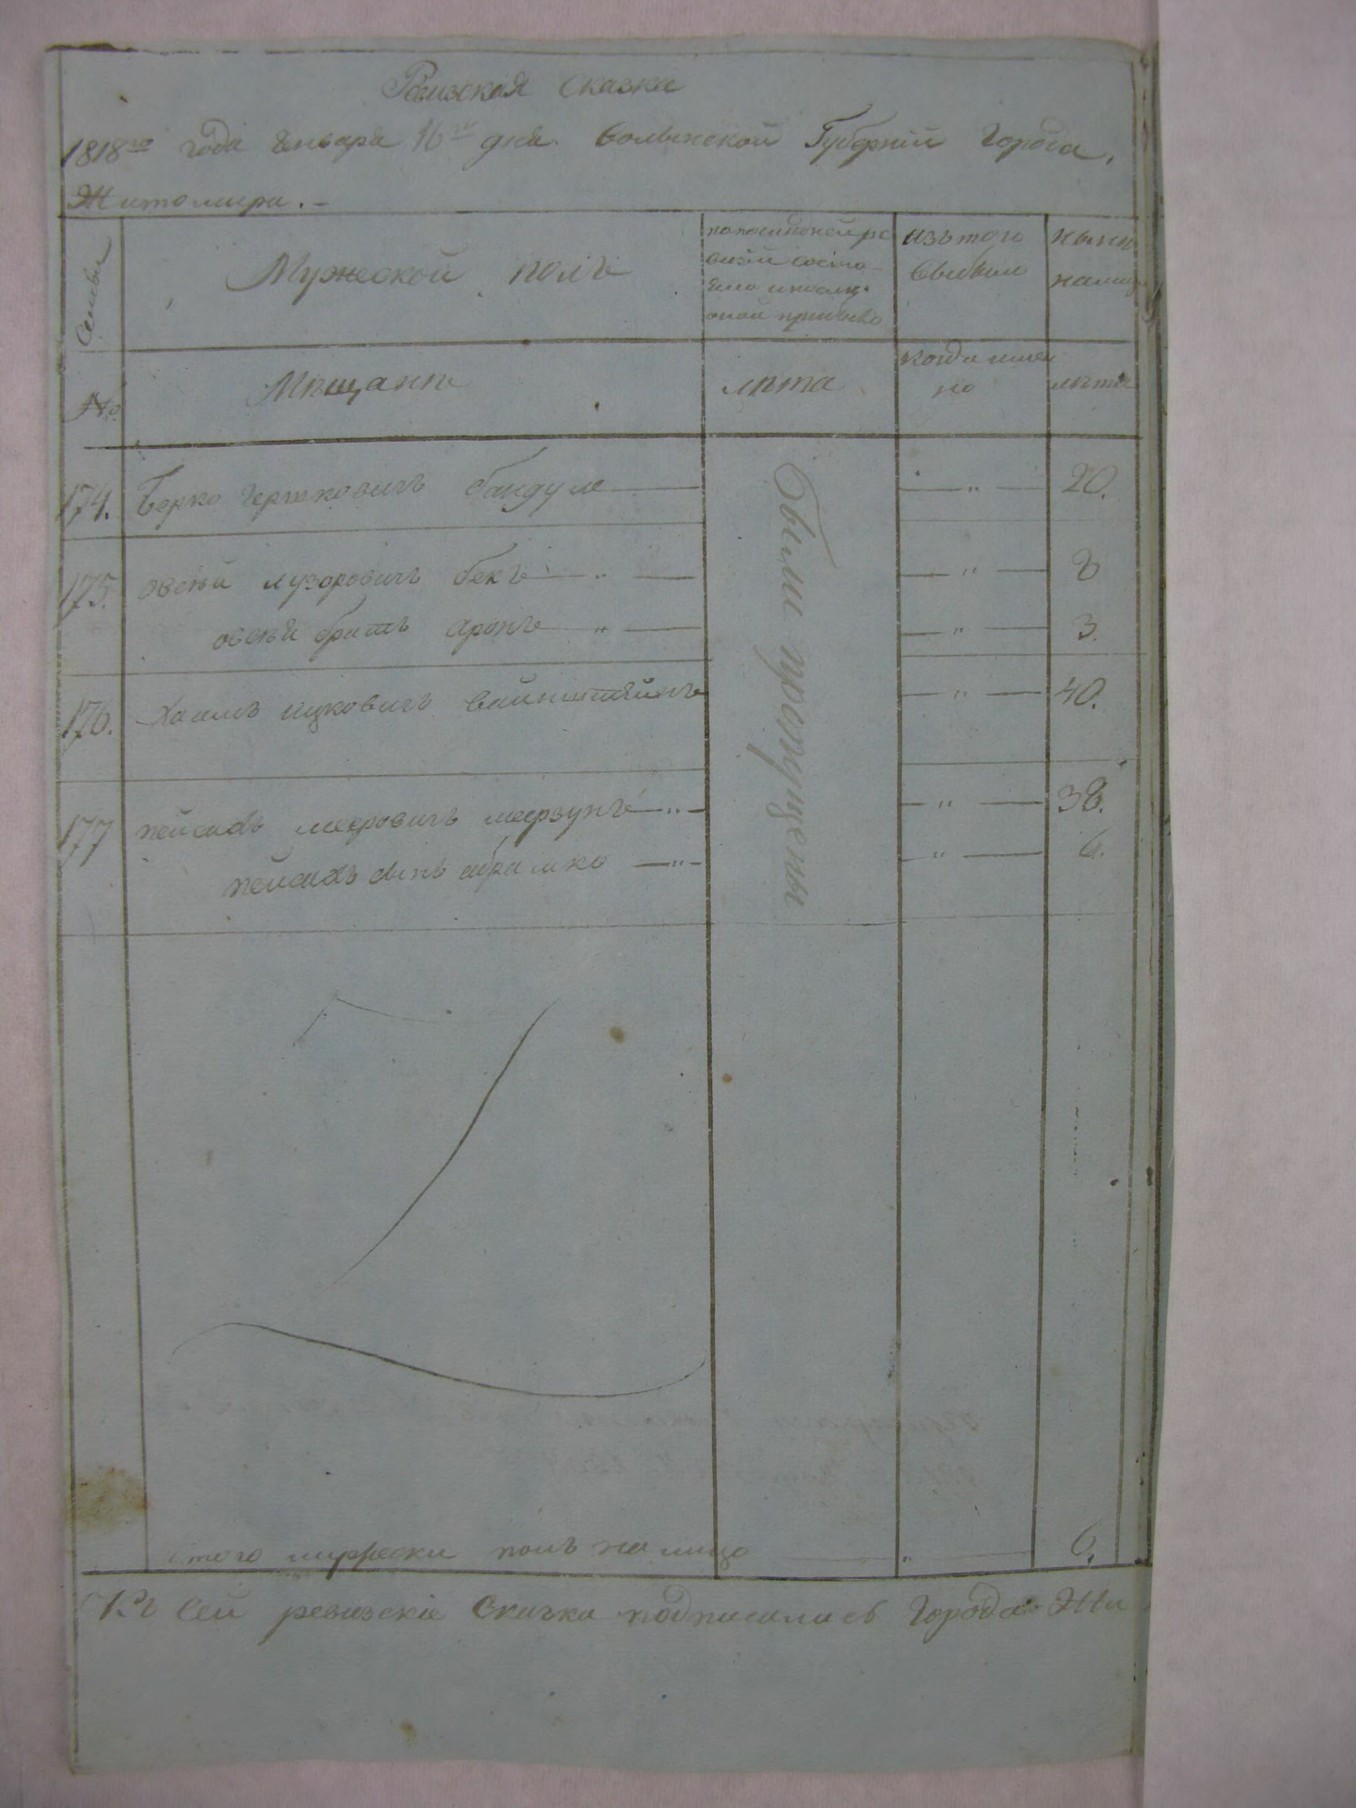 Ревизская Сказка
1818го года Января 16го дня Волынской Губернии Города
Житомира.
Семьи
Мужеской полъ
попоследней ре
визіи состо
яло и после
оной прибыло
изътого
выбыли
ныне
налицо
№
Мещане
лѣта
когда имен
но
лѣта
174. Берко Гершковичъ бандуле 20.
175. овсѣй лузоровичъ бекъ 8
овсѣя братъ аронъ 3.
176. Хаимъ ицковичъ вайнштейнъ 40.
177 пейсахъ мееровичъ 38.
пейсаха сынъ абрамко 6.
были пропущены
итого мужеска полъ на лицо 6.
Къ сей ревизские Сказка подписались Города Жи